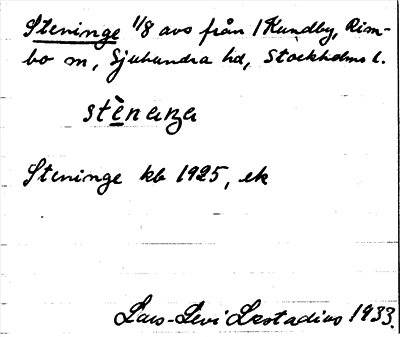 Steninge 1/8 avs från 1 Kundby, Rim-
bo sn, Sjuhundra hd, Stockholms l.
stènaŋa
Steninge kb 1925, ek
Lars-Levi Læstadius 1933.